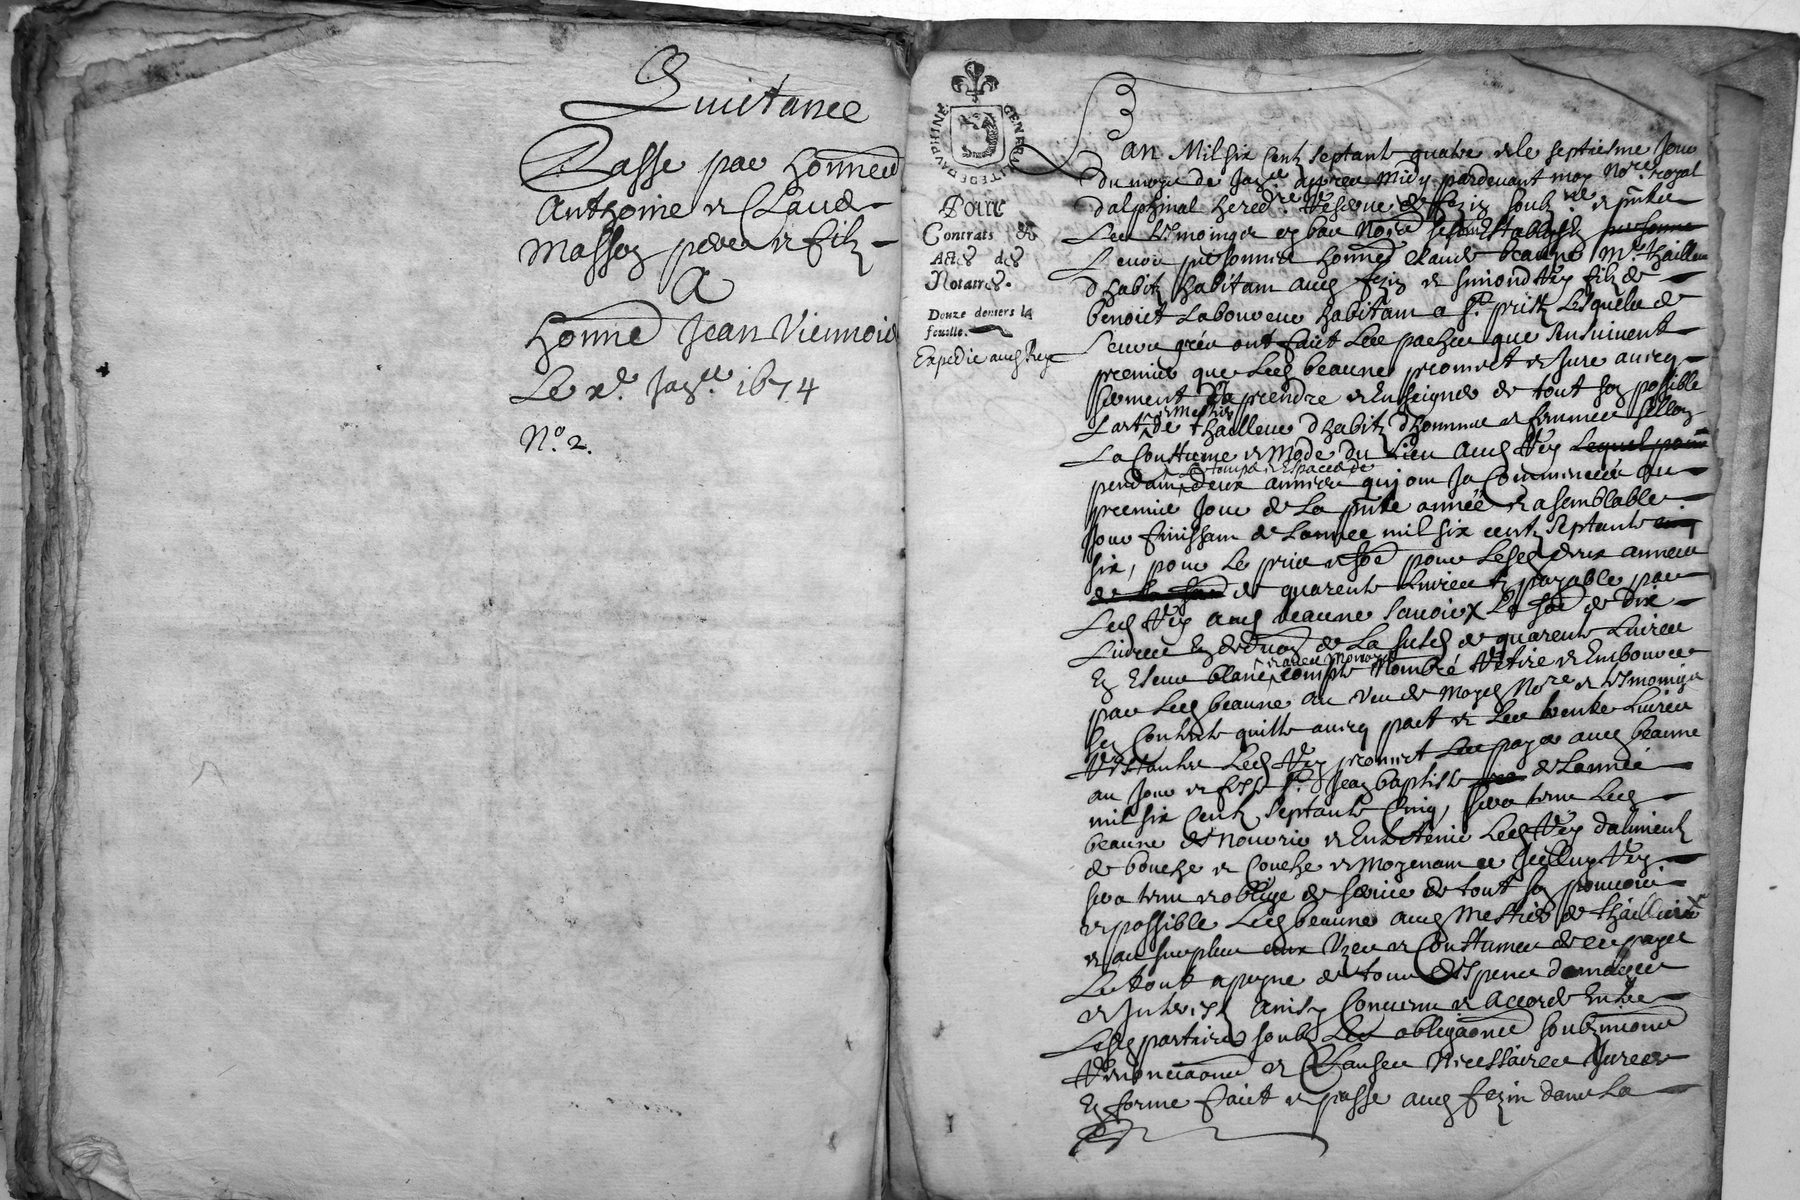 Quictance
Passe par Honneste
Anthoine et Claude
Masson pere et filz
A
Honnes Jean Viennois
Le xe. Janer. 1674
No. 2.
GENERALITE DE DAUPHINE
Pour
Contrats &
Actes des
Notaires.
Douze deniers la
feuille.
Expedie aud Rey
Lan Mil six centz septante quatre et le septiesme Jour
du moys de Janer apres Midy pardevant moy Nore royal
dalphinal hereditre
Les tesmoingz en bas Nommes se sont establys personne
Leurs personnes Honnes Claude beaune Mre thailleur
dhabitz habitant aud fezin et simond Rey filz de
benoict Laboureur habitant a St. prist Lesquels de
Leurs gres ont faict Les paches que sensuivent
premier que Led beaune promect et Jure aurey
prendre et Enseigner de tout son possible
et Mestier
Lart de thailleur dhabitz dhomme et femmes sellon
La Coustume et Mode du Lieu aud Rey Lequel
le temps et Espace de
pendant deux annees qui ont Ja Commencees au
premier Jour de La pnte année et a semblable
Jour finissant de Lannee mil six centz septante
six, pour Le prix et some pour Lesd deux annees
de quarente Livres tz payable par
Led Rey aud beaune scavoir La some de dix
Livres En deduction de La susd de quarente Livres
et autre Monoye
En Escus blancs compte Nombré Retire et Emboursee
par Led beaune au veu de Moyd Nore et tesmoingz
sen Contente quitte aurey pact et Les trente Livres
Restantes Led Rey promect Les payer aud beaune
au Jour et feste St. Jean baptiste de Lannée
mil six Centz septante Cinq, sera tenu Led
beaune de Nourir et Entretenir Led Rey dalimentz
de bouche et Couche et Moyenant ce Icelluy Rey
sera tenu et oblige de servir de tout son pouvoir
et possible Led beaune aud Mestier de thailleur
et au surplus aux Uzes et Coustumes de ce pays
Le tout a peyne de tous despens damages
et Interestz Ainsy Convenu et Accorde Entre
Lesd parties soubz Les obligaons soubzmissions
Renonciaons et Clauses Necessaires Jurees
En forme faict et passe aud fezin dans La